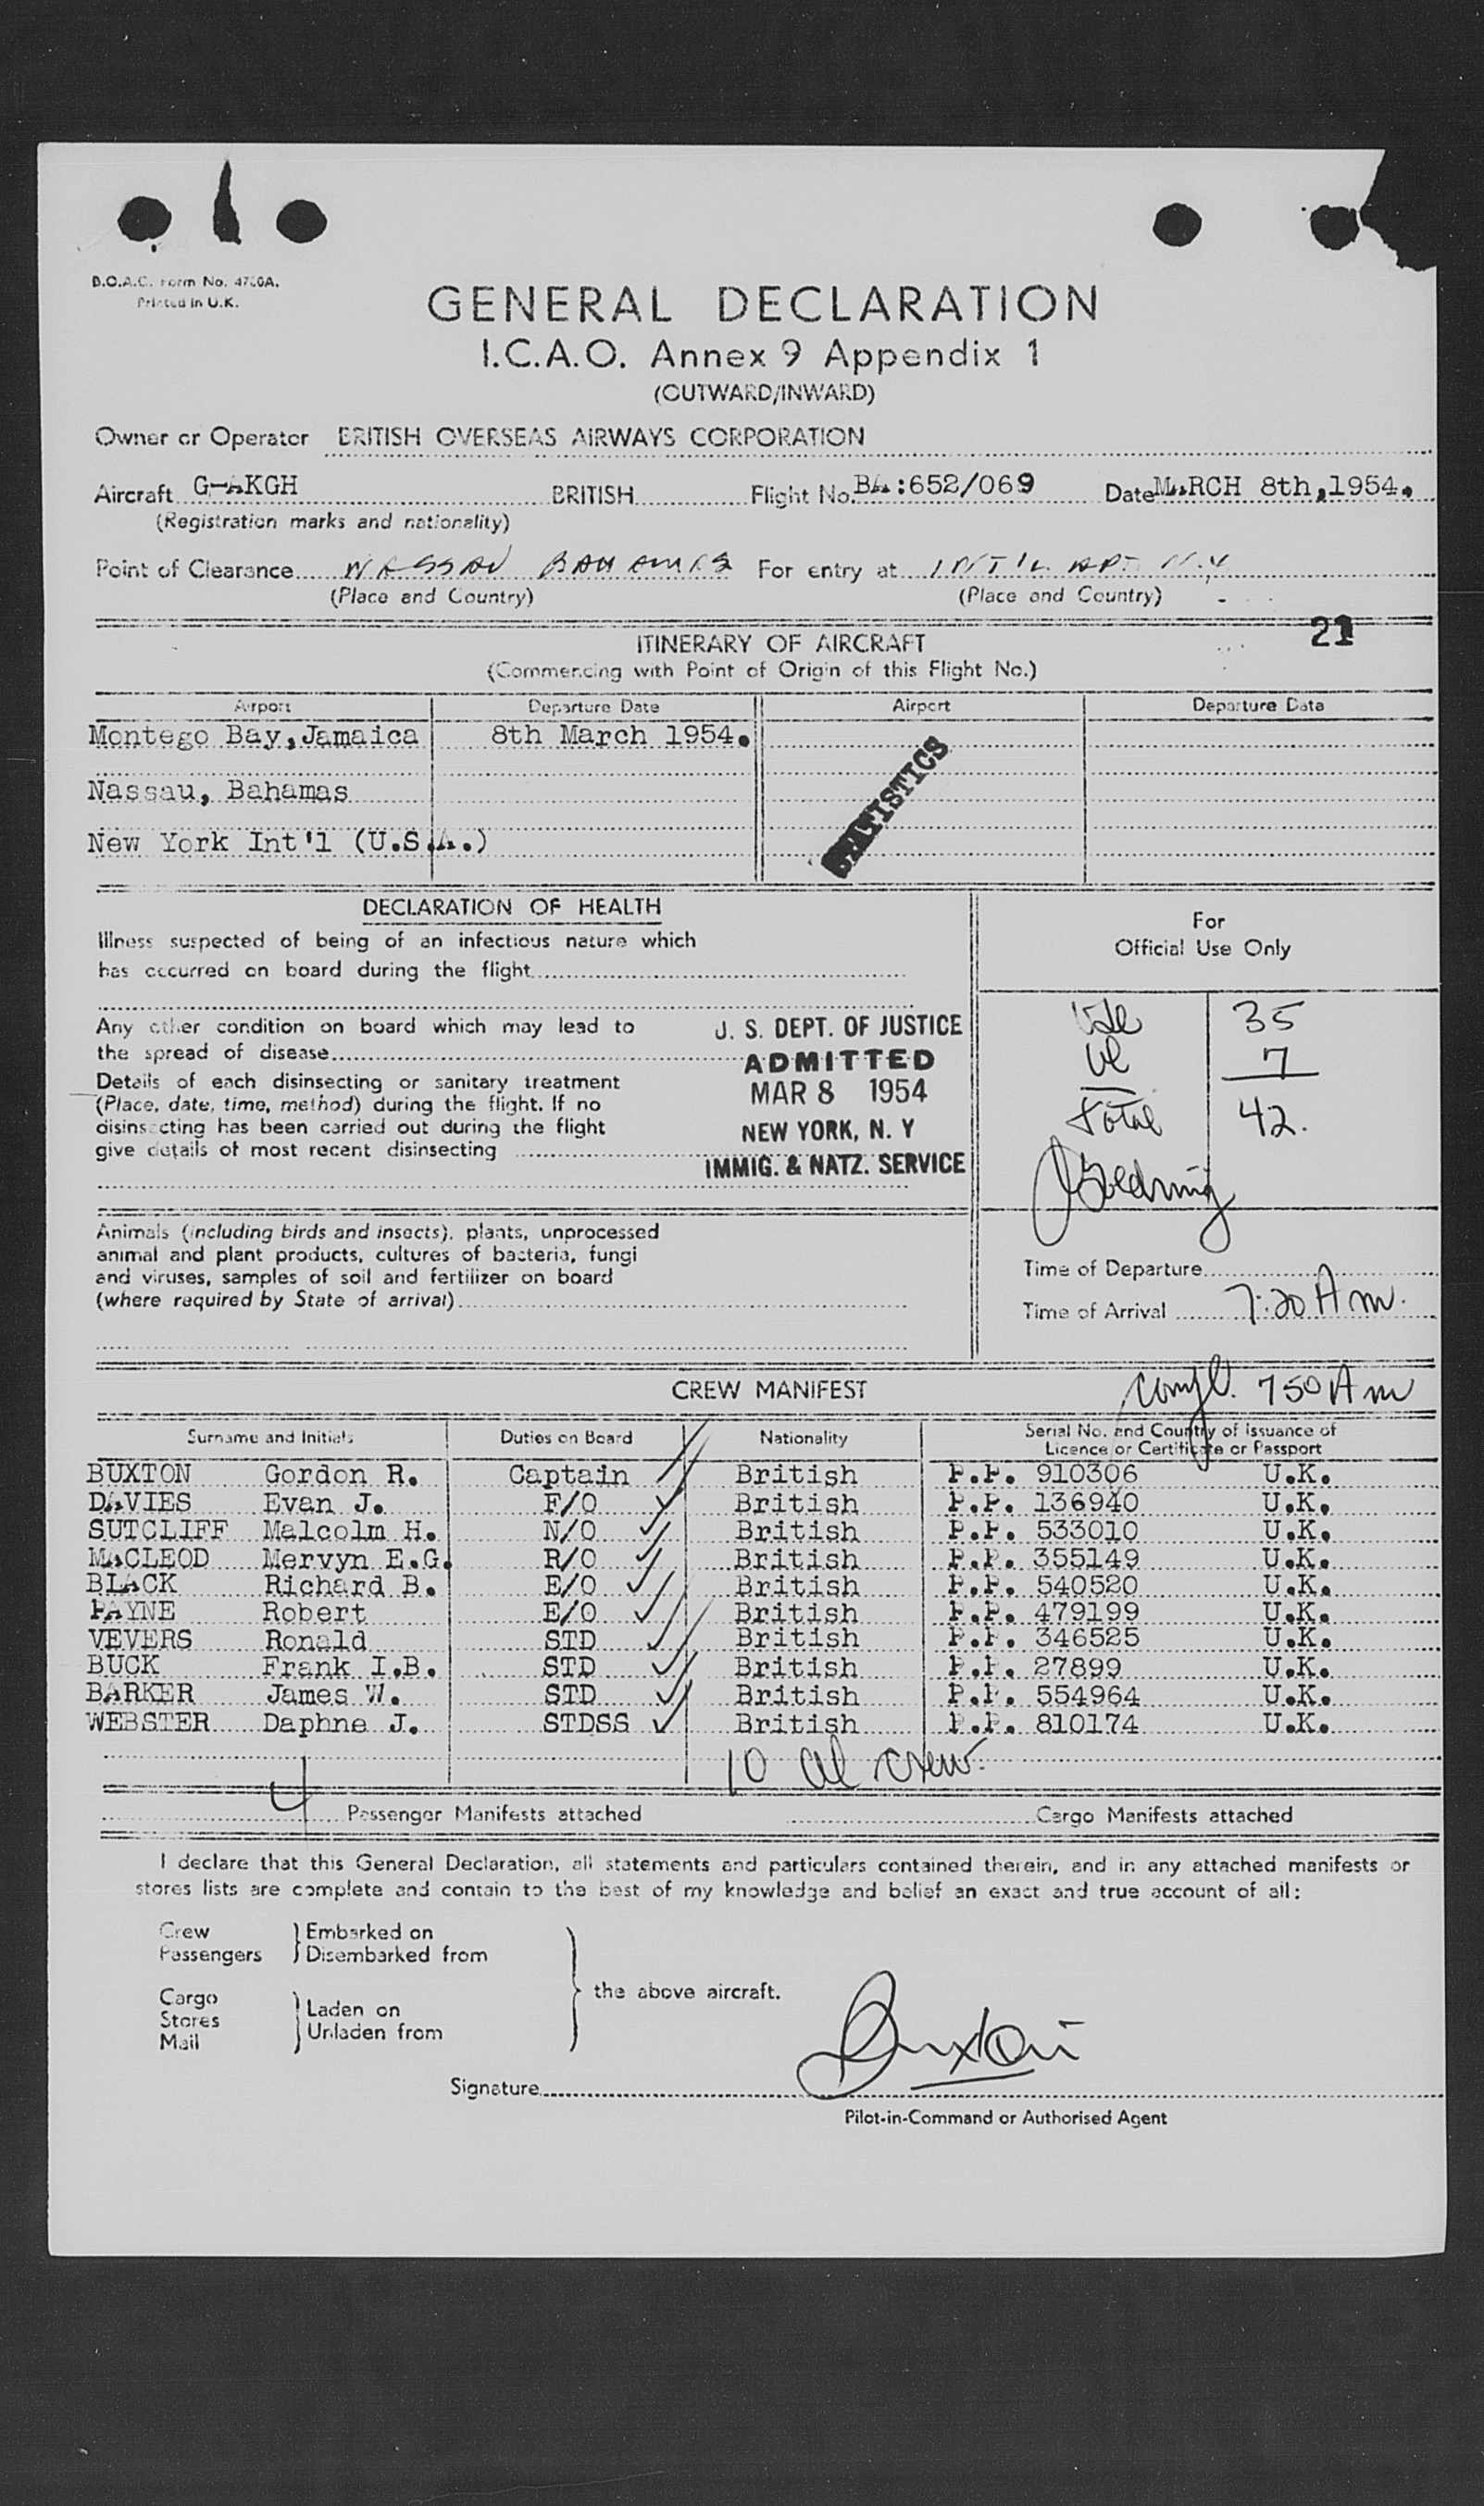 B.O.A.C. Form No. 4760A.
Printed in U.K.
GENERAL DECLARATION
I.C.A.O. Annex 9 Appendix 1
(OUTWARD/INWARD)
Owner or Operator BRITISH OVERSEAS AIRWAYS CORPORATION
Aircraft G-AKGH BRITISH Flight No. BA:652/069 Date MARCH 8th,1954.
(Registration marks and nationality)
Point of Clearance NASSAU BAHAMAS For entry at INT'L APT N.Y
(Place and Country) (Place and Country)
21
ITINERARY OF AIRCRAFT
(Commencing with Point of Origin of this Flight No.)
Airport Departure Date Airport Departure Date
Montego Bay, Jamaica 8th March 1954.
STATISTICS
Nassau, Bahamas
New York Int'l (U.S.A.)
DECLARATION OF HEALTH
Illness suspected of being of an infectious nature which
has occurred on board during the flight
Any other condition on board which may lead to
the spread of disease
Details of each disinsecting or sanitary treatment
(Place, date, time, method) during the flight. If no
disinsecting has been carried out during the flight
give details of most recent disinsecting
U. S. DEPT. OF JUSTICE
ADMITTED
MAR 8 1954
NEW YORK, N. Y
IMMIG. & NATZ. SERVICE
For
Official Use Only
35
7
Total 42.
Time of Departure
Time of Arrival 7:20 Am.
Animals (including birds and insects), plants, unprocessed
animal and plant products, cultures of bacteria, fungi
and viruses, samples of soil and fertilizer on board
(where required by State of arrival)
CREW MANIFEST
Compl. 750 Am
Surname and Initials Duties on Board Nationality Serial No. and Country of Issuance of
Licence or Certificate or Passport
BUXTON Gordon R. Captain British P.P. 910306 U.K.
DAVIES Evan J. F/O British P.P. 136940 U.K.
SUTCLIFF Malcolm H. N/O British P.P. 533010 U.K.
MACLEOD Mervyn E.G. R/O British P.P. 355149 U.K.
BLACK Richard B. E/O British P.P. 540520 U.K.
PAYNE Robert E/O British P.P. 479199 U.K.
VEVERS Ronald STD British P.P. 346525 U.K.
BUCK Frank I.B. STD British P.P. 27899 U.K.
BARKER James W. STD British P.P. 554964 U.K.
WEBSTER Daphne J. STDSS British P.P. 810174 U.K.
10 al crew.
4 Passenger Manifests attached Cargo Manifests attached
I declare that this General Declaration, all statements and particulars contained therein, and in any attached manifests or
stores lists are complete and contain to the best of my knowledge and belief an exact and true account of all:
Crew Embarked on
Passengers Disembarked from
the above aircraft.
Cargo Laden on
Stores
Mail Unladen from
Signature Buxton
Pilot-in-Command or Authorised Agent